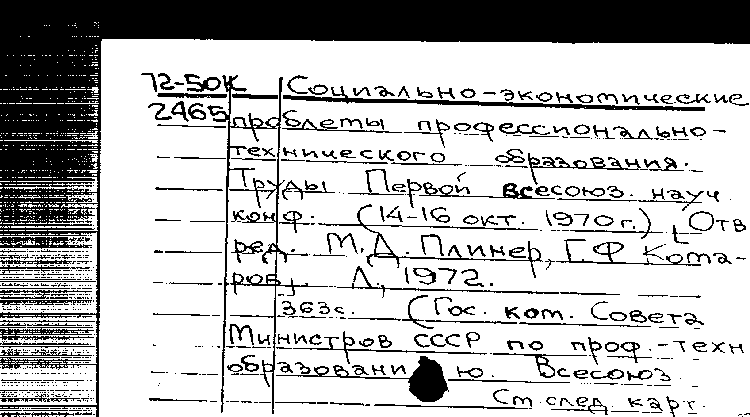 72-50К Социально-экономические
2465 проблемы профессионально-
технического образования.
Труды Первой всесоюз. науч.
конф. (14-16 окт. 1970 г.) [Отв
ред. М.Д. Плинер, Г.Ф Кома-
ров]. Л., 1972.
363с. (Гос. ком. Совета
Министров СССР по проф.-техн
образовани ю. Всесоюз
См след карт.